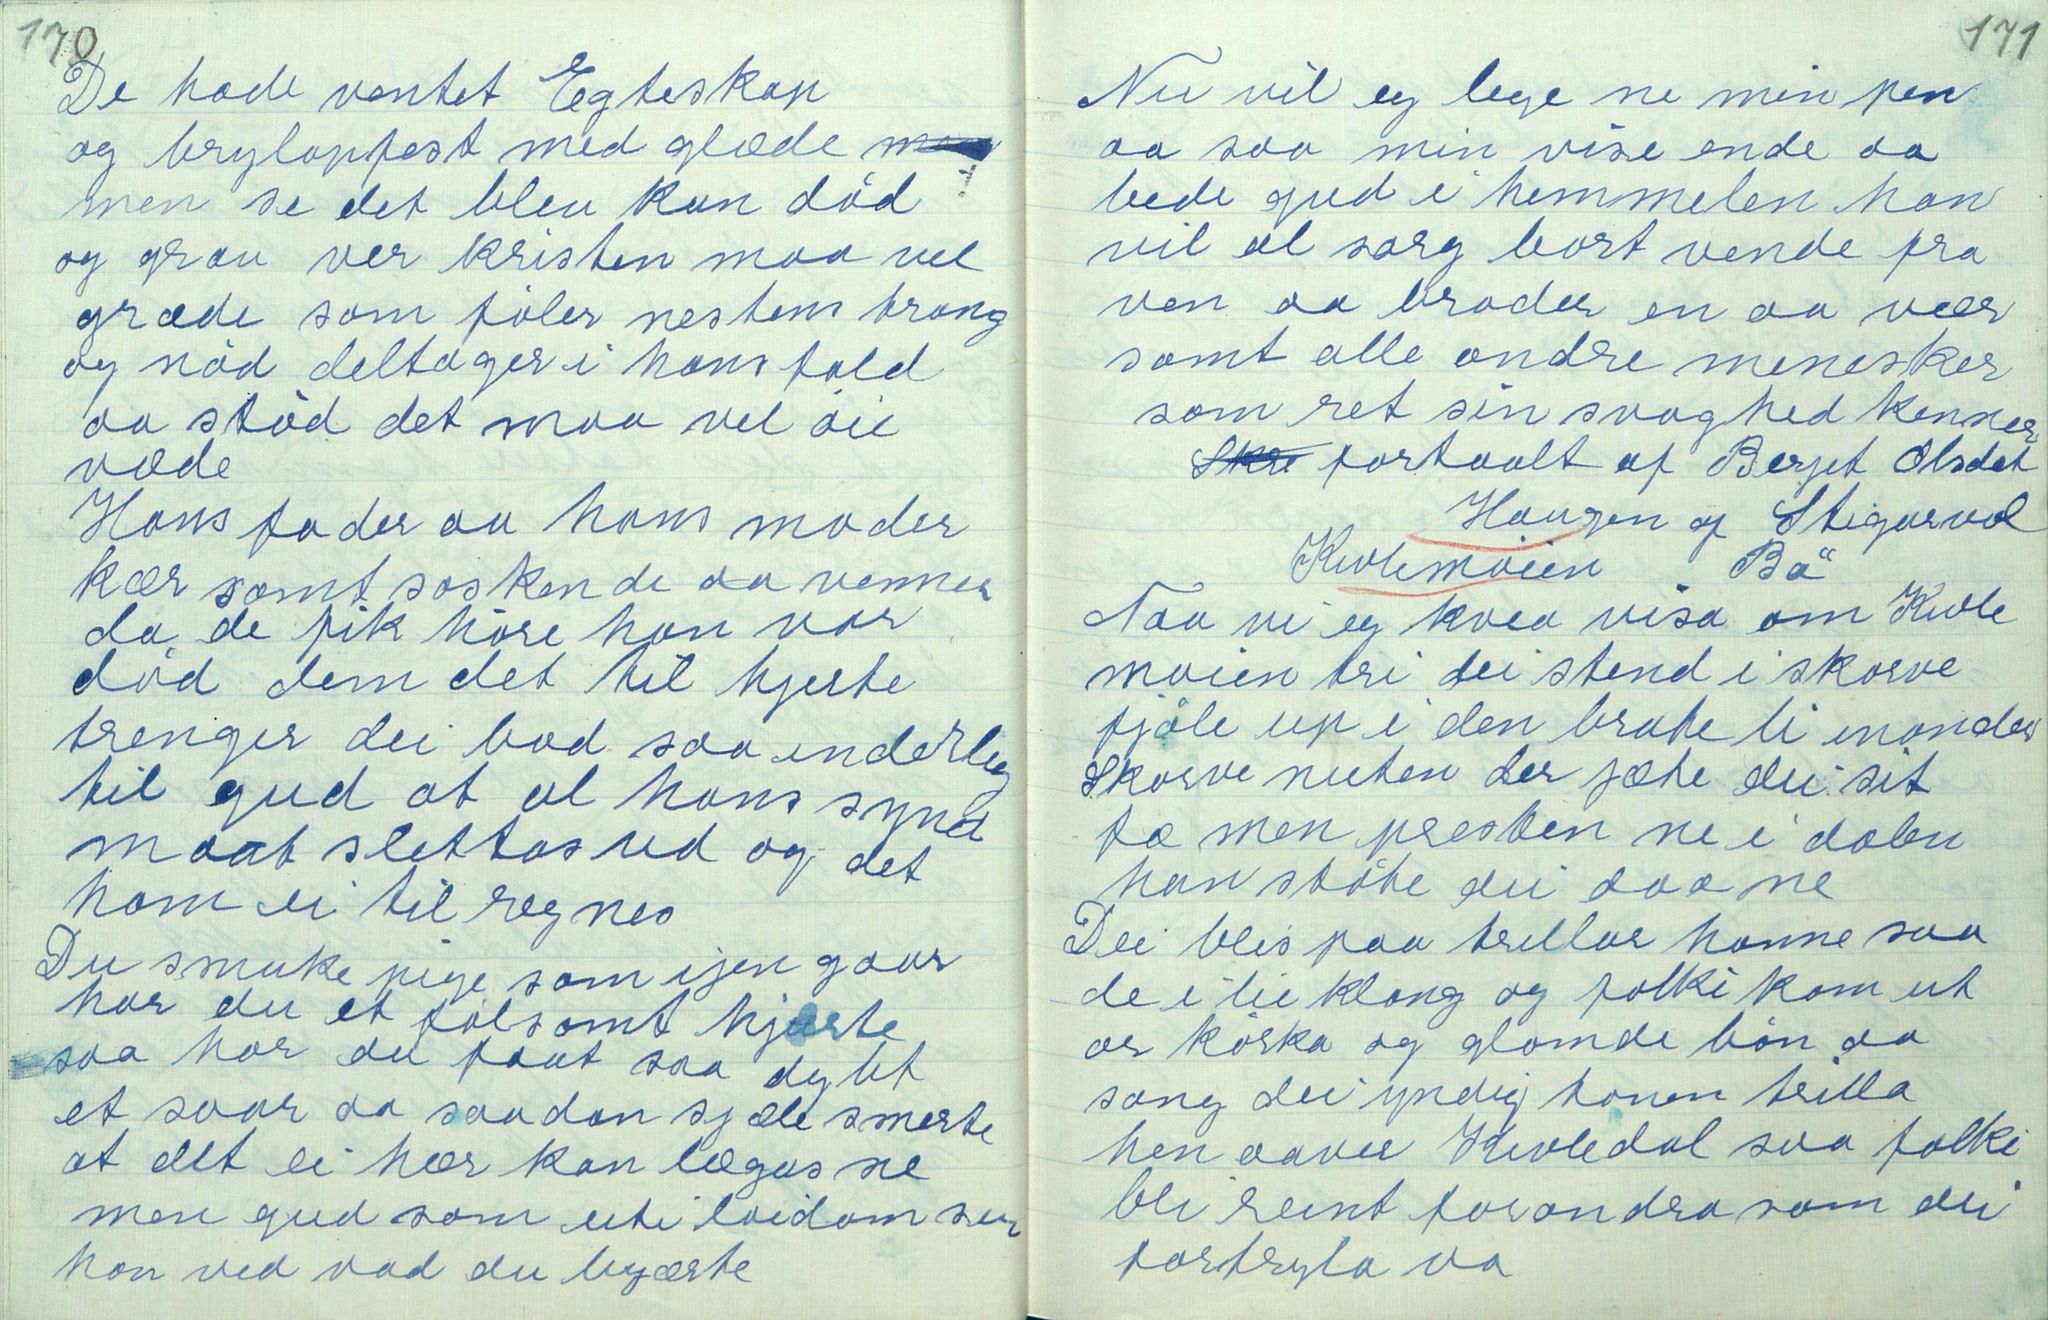 170
De hade ventet Egteskap
og brylopfest med glæde
men se det blev kun död
og grav ver kristen maa vel
græde som föler nestens trang
og nöd deltager i hans fald
aa stöd det maa vel öie
væde
Hans fader aa hans moder
kær samt soskende aa venner
da de fik höre han var
död dem det til hjerte
trenger dei bad saa inderlig
til gud at al hans synd
maat slettas ud og det
ham ei til regnes
Du smuke pige som igen gaar
har du et fölsomt hjerte
saa har du faat saa dybt
et saar aa saadan sjæle smerte
at det ei hær kan lægas ne
men gud som uti löidom ser
han ved vad du begærte
171
Nu vil eg lege ne min pen
aa saa min vise ende aa
bede gud i hemmelen han
vil al sorg bort vende fra
ven aa broder en aa vær
samt alle andre menesker
som ret sin svaghed kenner
fortaalt af Berget Olsdat
Haugen af Stigarvol
Kivlemöien Bö
Naa vi eg kvea visa om Kivle
möien tri dei stend i skorve
fjöle up i den brate li inonder
Skorve nuten der jæte dei sit
fæ men presten ne i dalen
han støte dei daa ne
Dei bles paa trillar honne saa
de i lie klang og folki kom ut
or körka og glömde bön aa
sang dei yndig tonen trilla
hen aaver Kivledal saa folki
bli reint forandra som dei
fortryla va